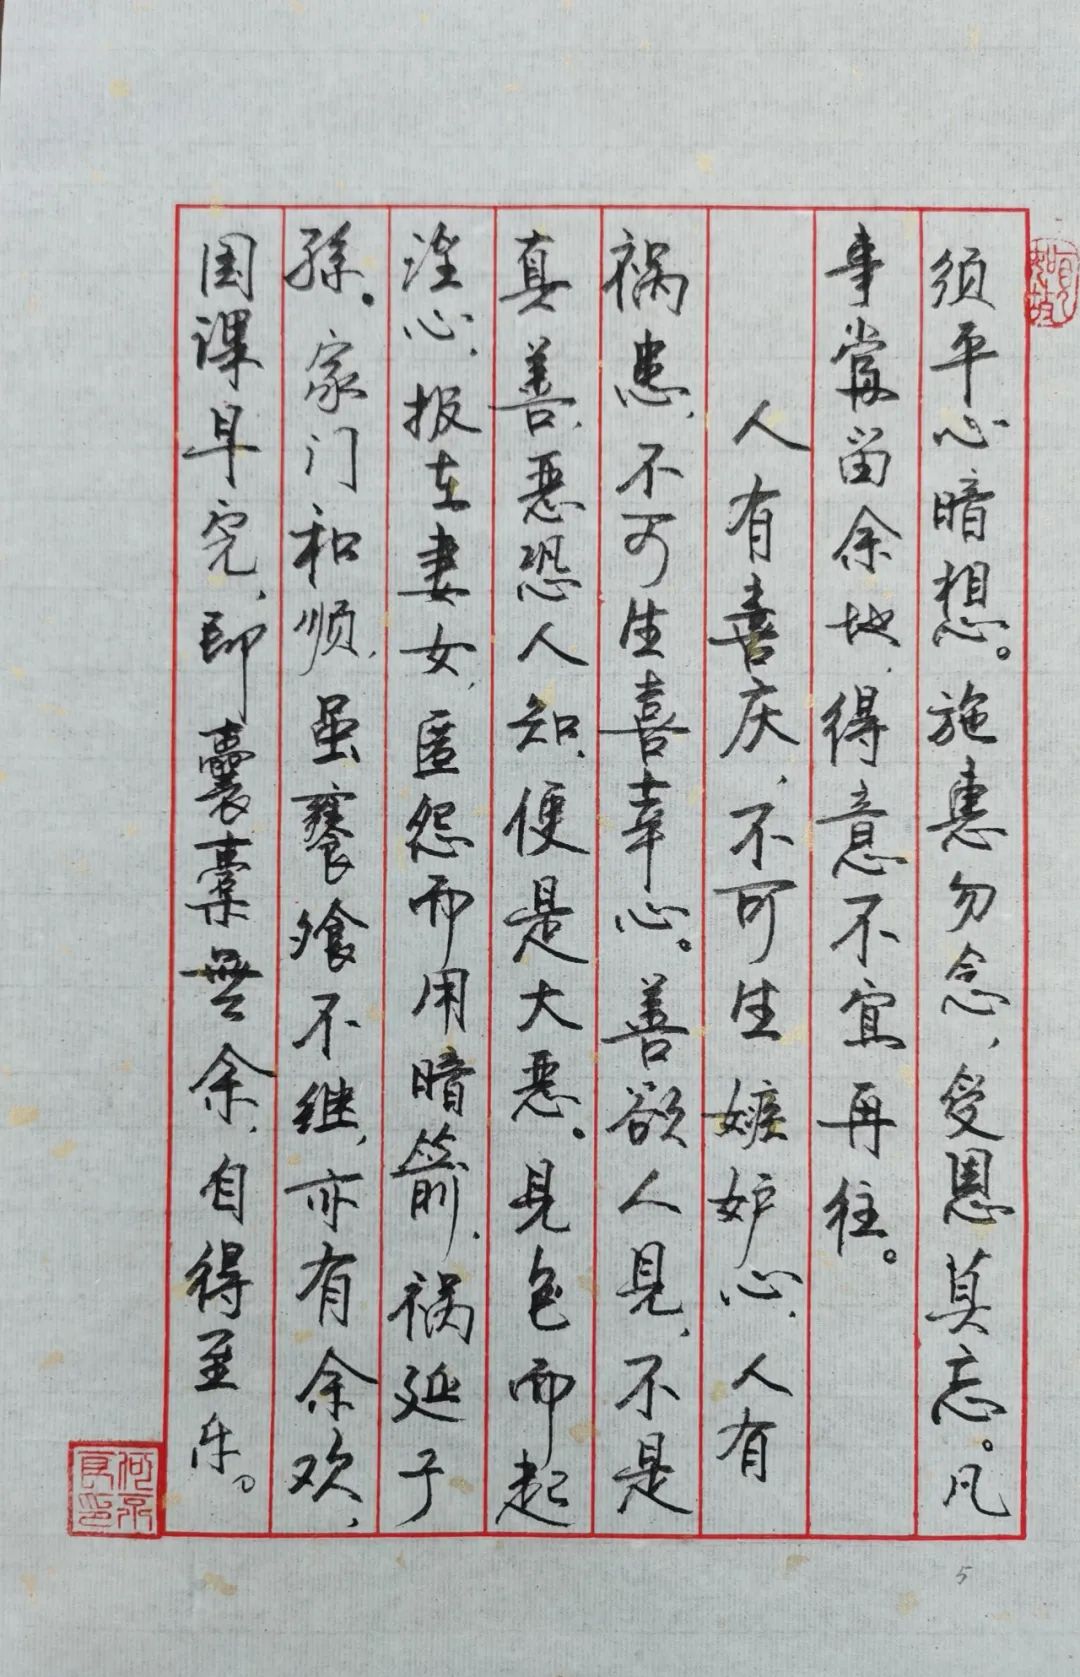 须平心暗想。施惠勿念，受恩莫忘。凡
事当留余地，得意不宜再往。
人有喜庆，不可生嫉妒心，人有
祸患，不可生喜幸心。善欲人见，不是
真善，恶恐人知，便是大恶。见色而起
淫心，报在妻女，匿怨而用暗箭，祸延子
孫。家门和顺，虽饔飧不继，亦有余欢，
国课早完，即囊橐無余，自得至乐。
何永良印
5